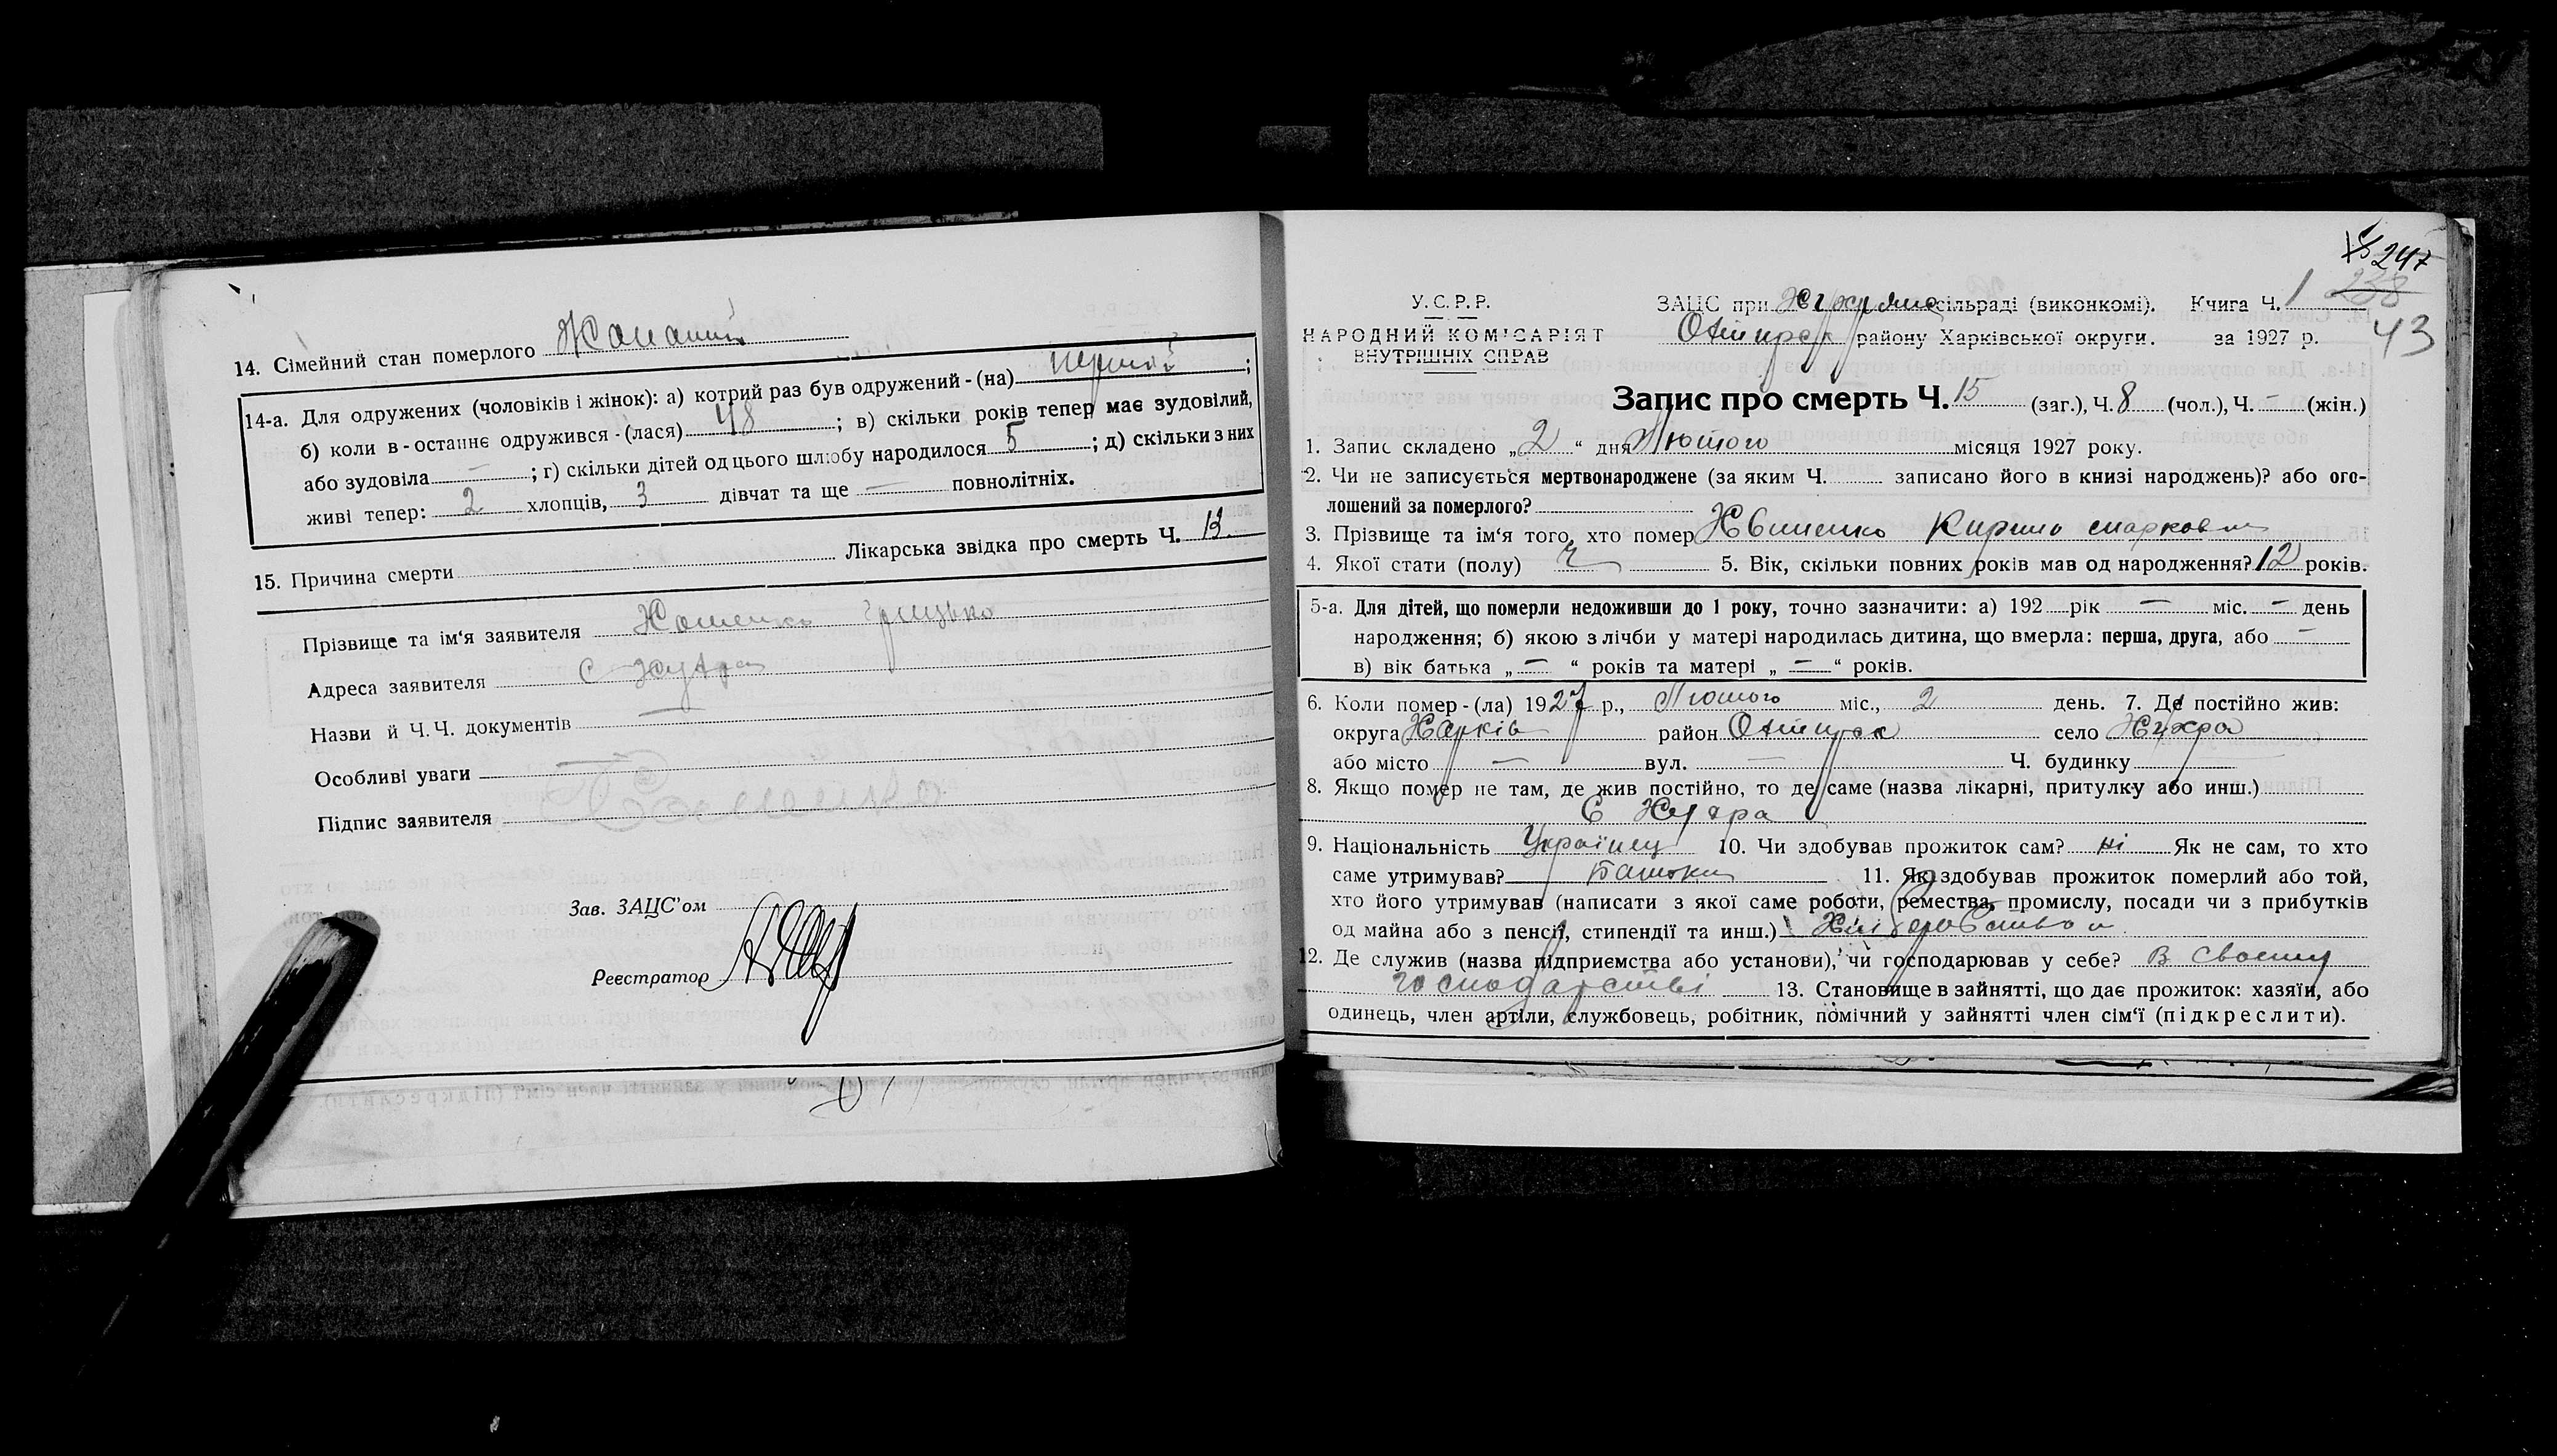 14. Сімейний стан померлого Жонатий
14-а. Для одружених (чоловіків і жінок): а) котрий раз був одружений-(на) первий;
б) коли в-останнє одружився-(лася) 48; в) скільки років тепер має зудовілий,
або зудовіла —; г) скільки дітей од цього шлюбу народилося 5; д) скільки з них
живі тепер: 2 хлопців, 3 дівчат та ще — повнолітніх.
15. Причина смерти Лікарська звідка про смерть Ч. 13
Прізвище та ім'я заявителя Грицько
Адреса заявителя с Хухра
Назви й Ч.Ч. документів —
Особливі уваги —
Підпис заявителя
Зав. ЗАЦС'ом
Реєстратор
247
У.С.Р.Р.
НАРОДНИЙ КОМІСАРІЯТ
ВНУТРІШНІХ СПРАВ
ЗАЦС при Хухрянс сільраді (виконкомі). Книга Ч. 1 238
Охтирск району Харківської округи. за 1927 р. 43
Запис про смерть Ч. 15 (заг.), Ч. 8 (чол.), Ч. - (жін.)
1. Запис складено „2“ дня Лютого місяця 1927 року.
2. Чи не записується мертвонароджене (за яким Ч. записано його в книзі народжень)? або ого-
лошений за померлого?
3. Прізвище та ім'я того, хто помер Кирило Маркович
4. Якої стати (полу) Ч 5. Вік, скільки повних років мав од народження? 12 років.
5-а. Для дітей, що померли недоживши до 1 року, точно зазначити: а) 192 рік — міс. — день
народження; б) якою з лічби у матері народилась дитина, що вмерла: перша, друга, або —
в) вік батька „—“ років та матері „—“ років.
6. Коли помер-(ла) 1927 р., Лютого міс., 2 день. 7. Де постійно жив:
округа Харків район Охтирск село Хухра
або місто — вул. — Ч. будинку —
8. Якщо помер не там, де жив постійно, то де саме (назва лікарні, притулку або инш.)
С Хухра
9. Національність Українец 10. Чи здобував прожиток сам? ні Як не сам, то хто
саме утримував? Батьки 11. Як здобував прожиток померлий або той,
хто його утримував (написати з якої саме роботи, ремества, промислу, посади чи з прибутків
од майна або з пенсії, стипендії та инш.) Хліборобство
12. Де служив (назва підприємства або установи), чи господарював у себе? В своему
господарстві 13. Становище в зайнятті, що дає прожиток: хазяїн, або
одинець, член артіли, службовець, робітник, помічний у зайнятті член сім'ї (підкреслити).